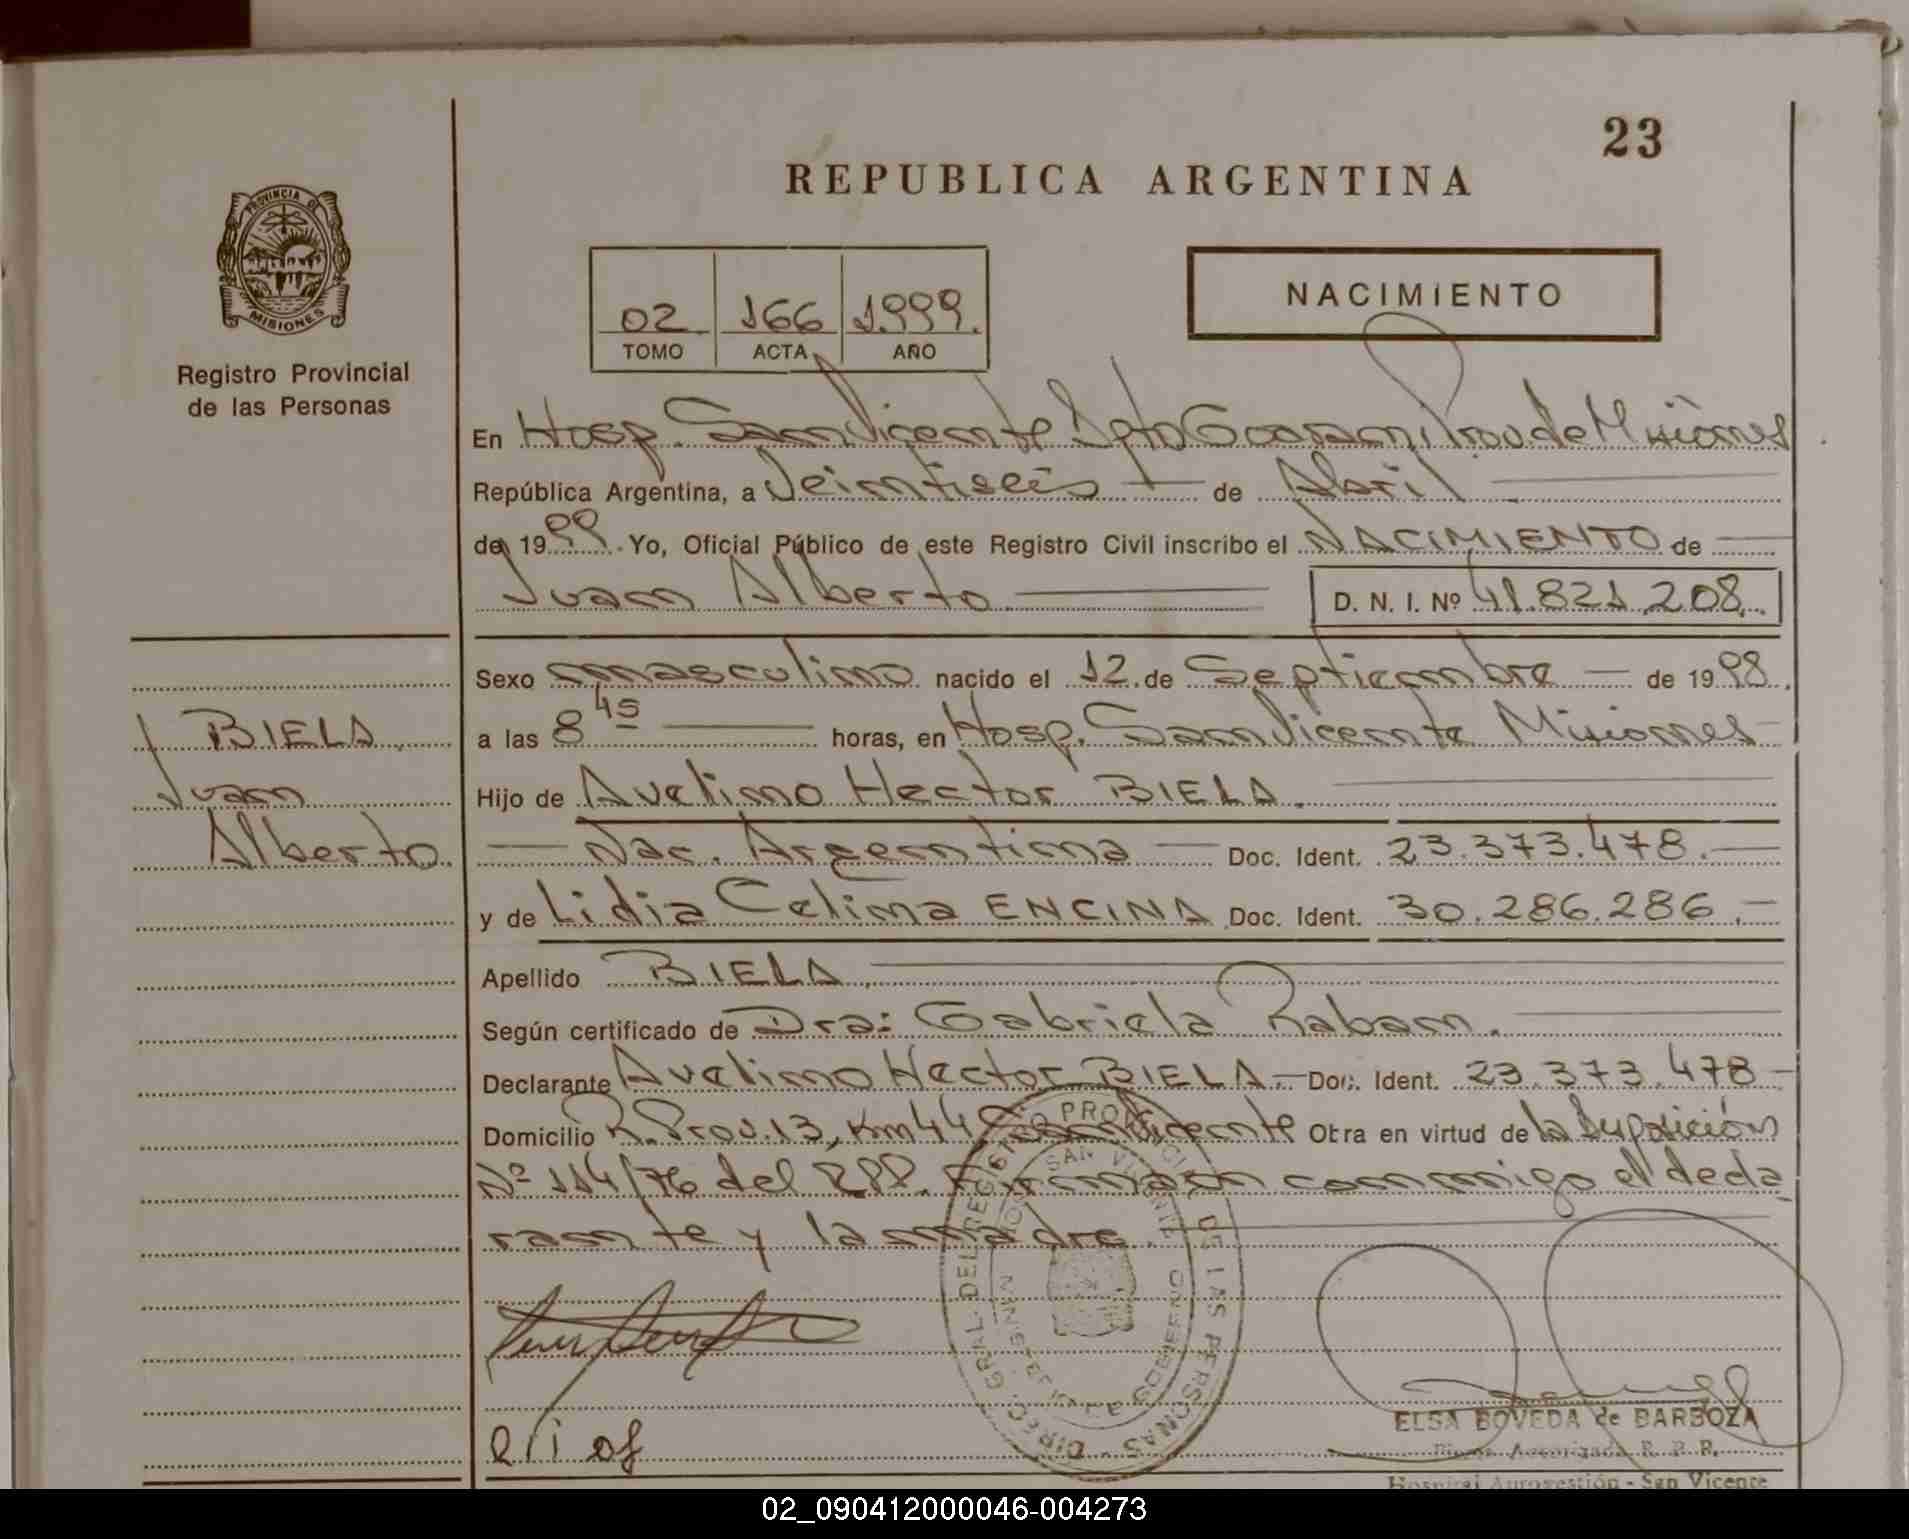 23
REPUBLICA ARGENTINA
PROVINCIA DE
MISIONES
Registro Provincial
de las Personas
02 166 1.999.
TOMO ACTA AÑO
NACIMIENTO
En Hosp. San Vicente Dpto Guarani Prov. de Misiones
República Argentina, a Veintiseis de Abril
de 1999 Yo, Oficial Público de este Registro Civil inscribo el NACIMIENTO de
Juan Alberto D. N. I. Nº 41.821.208.
Sexo masculino nacido el 12 de Septiembre de 1998.
a las 8 45 horas, en Hosp. San Vicente Misiones
Hijo de Avelino Hector BIELA.
Nac. Argentina Doc. Ident. 23.373.478.
y de Lidia Celina ENCINA Doc. Ident. 30.286.286.
Apellido BIELA
Según certificado de Dra: Gabriela Raban.
Declarante Avelino Hector BIELA.- Doc. Ident. 23.373.478
Domicilio R. Prov. 13, Km 44 San Vicente Obra en virtud de la Disposición
Nº 114/76 del RPP. Firman conmigo el decla
rante y la madre.
BIELA
Juan
Alberto
DIREC. GRAL. DEL REGISTRO PROVINCIAL DE LAS PERSONAS
SAN VICENTE
ELSA BOVEDA de BARBOZA
Firma Autorizada R. P. P.
Hospital Autogestión - San Vicente
02_090412000046-004273